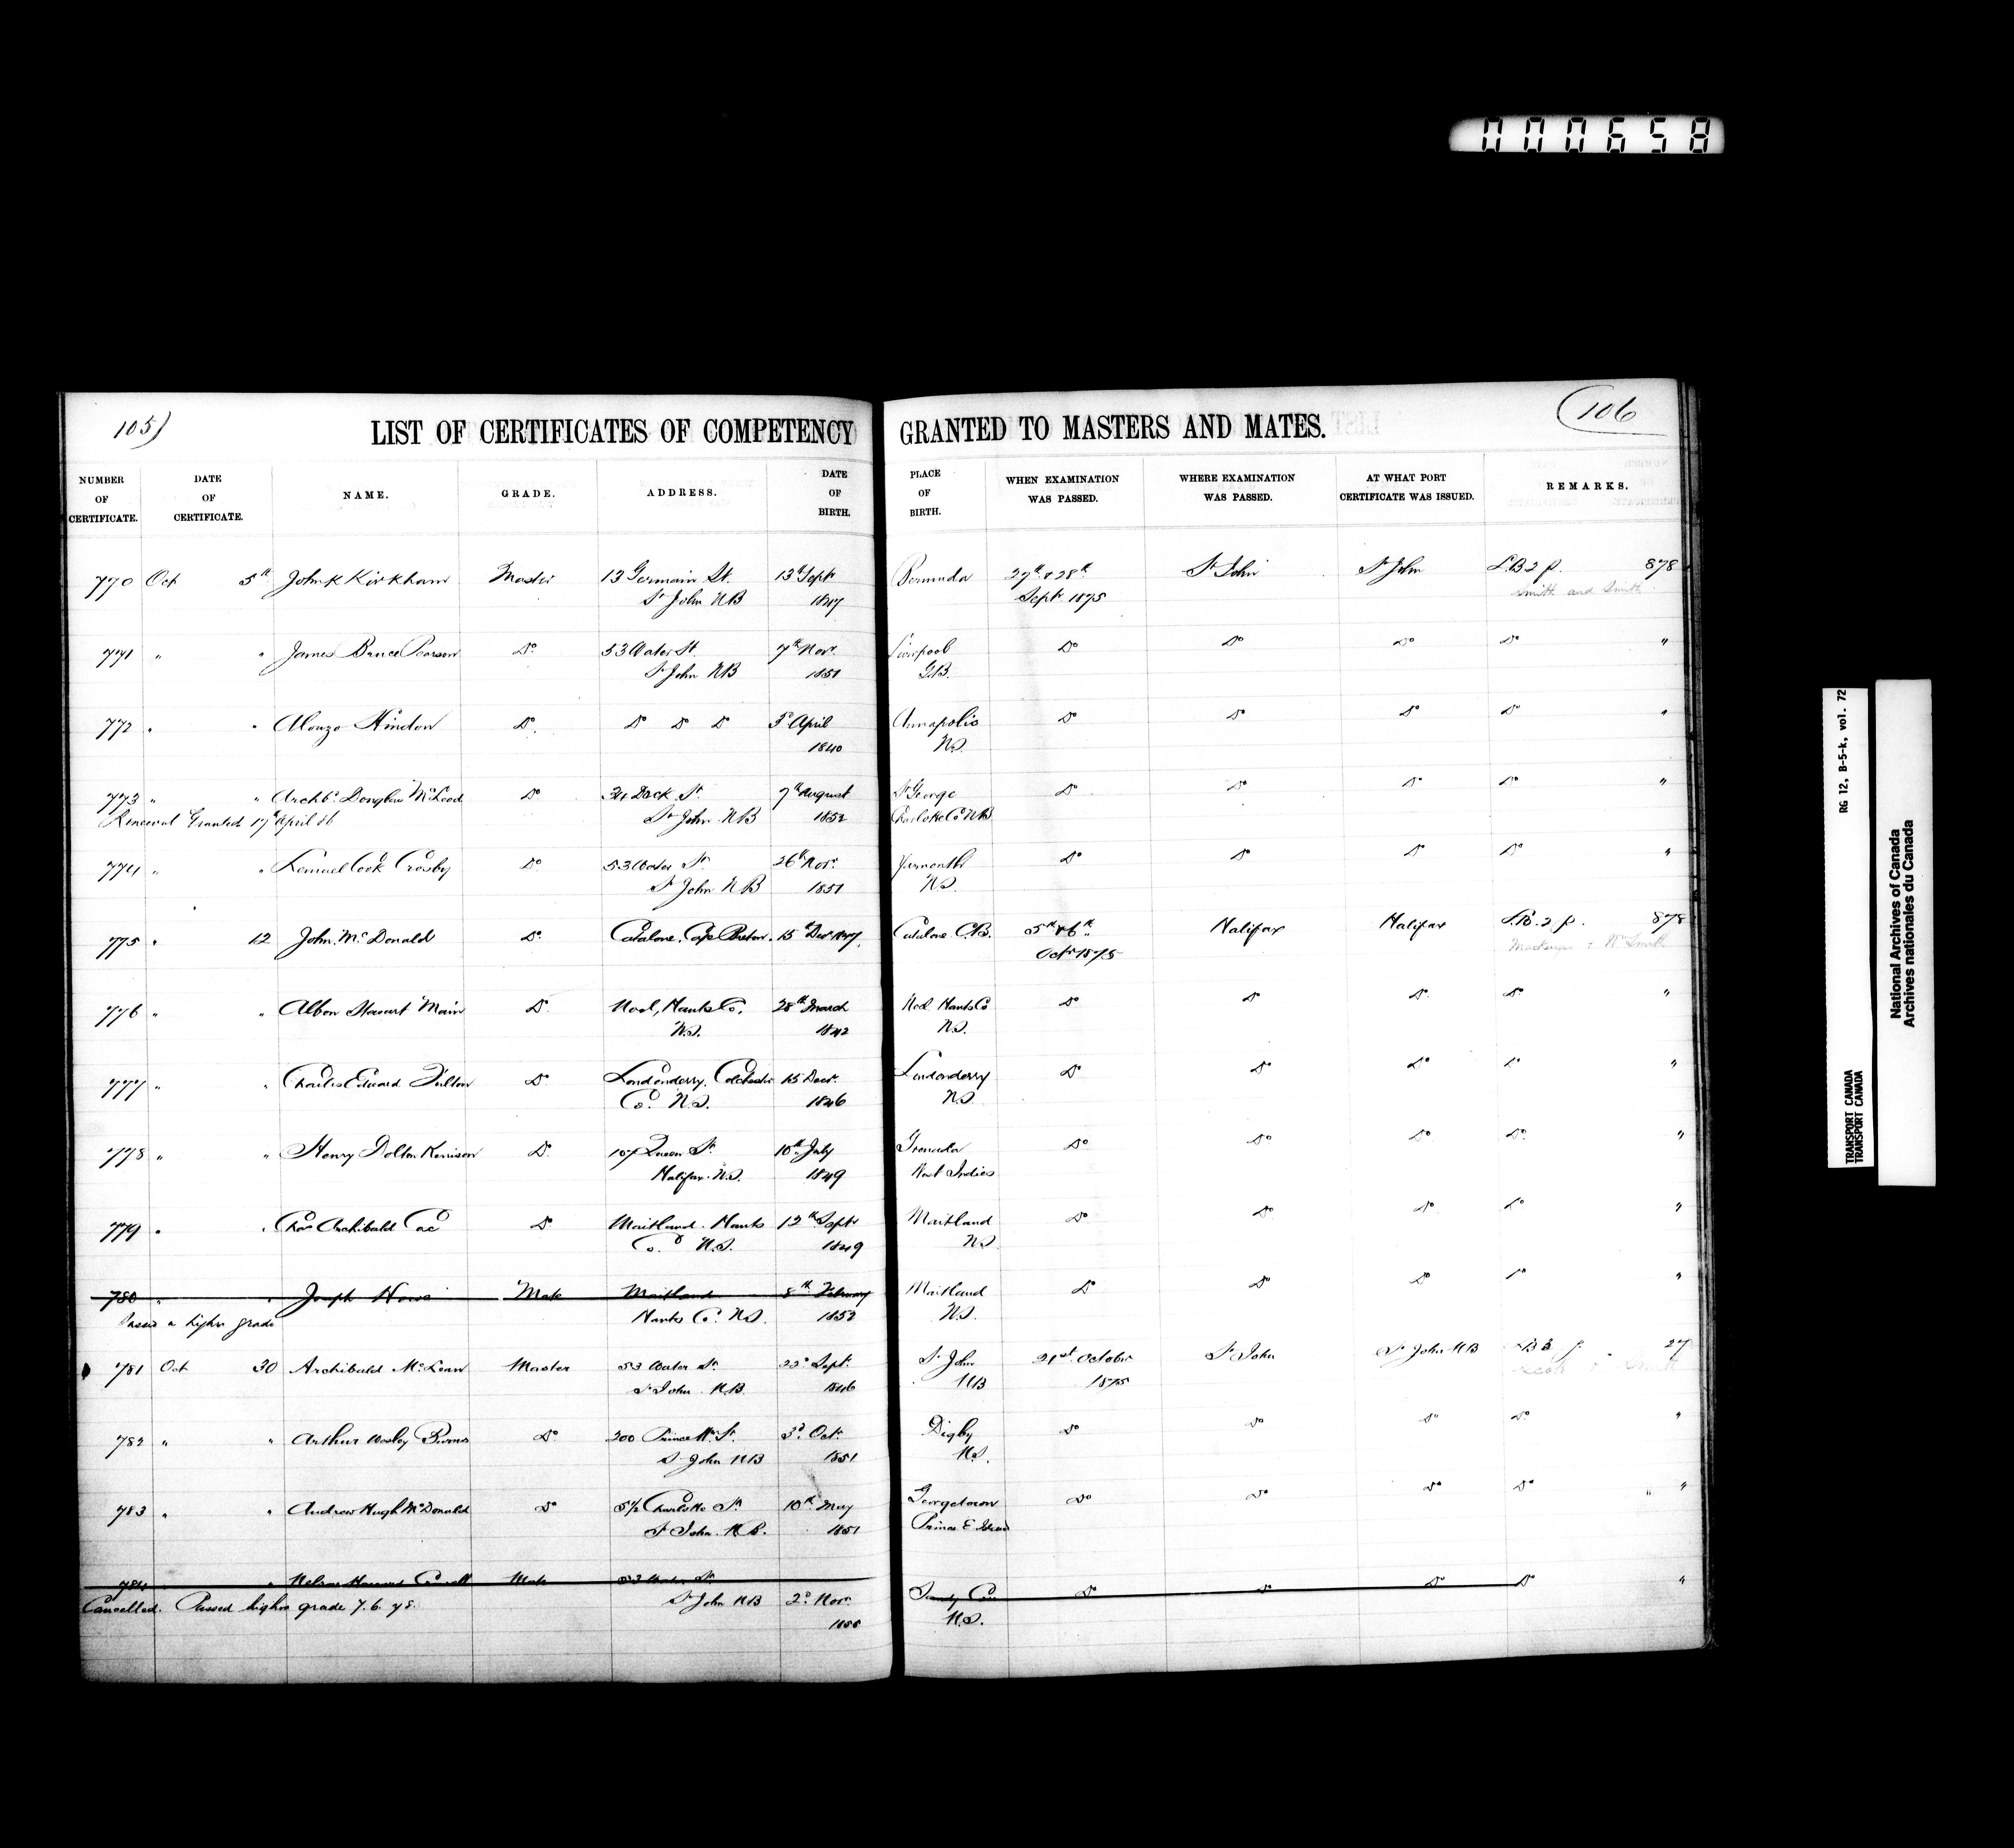 000658
105)
(106
LIST OF CERTIFICATES OF COMPETENCY GRANTED TO MASTERS AND MATES.
NUMBER OF CERTIFICATE. DATE OF CERTIFICATE. NAME. GRADE. ADDRESS. DATE OF BIRTH. PLACE OF BIRTH. WHEN EXAMINATION WAS PASSED. WHERE EXAMINATION WAS PASSED. AT WHAT PORT CERTIFICATE WAS ISSUED. REMARKS.
770 Oct 5th John K Kirkham Master 13 Germain St. 13th Sept Bermuda 27th & 28th St John St John L.B 2 p. 878
St John NB 1847 Sept 1875 Smith and Smith
771 " " James Bruce Pearson Do 53 Water St. 7th Novr Liverpool Do Do Do Do "
St John NB 1851 G.B.
772 " " Alonzo Hindon Do Do Do Do 3d April Annapolis Do Do Do Do "
1840 N.S.
773 " " Archbd Douglas McLeod Do 34 Dock St 7th August St George Do Do Do Do "
Renewal Granted 17th April 86 St John NB 1852 Charlotte Co NB
774 " " Lemuel Cook Crosby Do 53 Water St 26th Novr Yarmouth Do Do Do Do "
St John NB 1851 N.S.
775 " 12 John McDonald Do Catalone, Cape Breton. 15 Decr Catalone C.B. 5th & 6th Halifax Halifax L.B. 2 p. 878
Octr 1875 Smith
776 " " Albon Stewart Main Do Noel, Hants Co, 28th March Noel Hants Co Do Do Do Do "
N.S. 1842 N.S.
777 " " Charles Edward Fulton Do Londonderry, Colchester 15 Decr Londonderry Do Do Do Do "
Co. N.S. 1846 N.S.
778 " " Henry Dolton Kenison Do 107 Queen St 10th July Grenada Do Do Do Do "
Halifax N.S. 1849 West Indies
779 " " Chas Archibald Do Maitland. Hants 12th Sept Maitland Do Do Do Do "
Co. N.S. 1849 N.S.
780 " " Joseph Howe Mate Maitland 8th February Maitland Do Do Do Do "
Passed a higher grade Hants Co. N.S. 1852 N.S.
781 Oct 30 Archibald McLean Master 53 Water St 22d Sept St John 21st October St John St John NB L B 3 p. 27
St John N.B. 1846 NB 1875
782 " " Arthur Wesley Do 200 Prince Wm St. 3d Oct Digby Do Do Do Do "
St John NB 1851 N.S.
783 " " Andrew Hugh McDonald Do 5 1/2 Charlotte St 10th May Georgetown Do Do Do Do "
St John N.B. 1851 Prince E Island
784 " Nelson Mate 53 Water St Sandy Cove Do Do Do Do "
Cancelled. Passed higher grade 7.6.78. St John NB 2d Novr N.S.
1855
RG 12, B-5-k, vol. 72
TRANSPORT CANADA
TRANSPORT CANADA
National Archives of Canada
Archives nationales du Canada